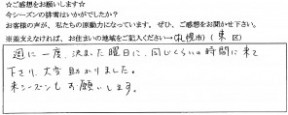 ☆ご感想をお願いします☆
今シーズンの排雪はいかがでしたか?
お客様の声が、私たちの原動力になっています。ぜひ、ご感想をお聞かせ下さい。
※差支えなければ、お住まいの地域をご記入ください→(札幌市)(東区)
週に一度、決まった曜日に、同じくらいの時間に来て
下さり、大変助かりました。
来シーズンもお願いします。